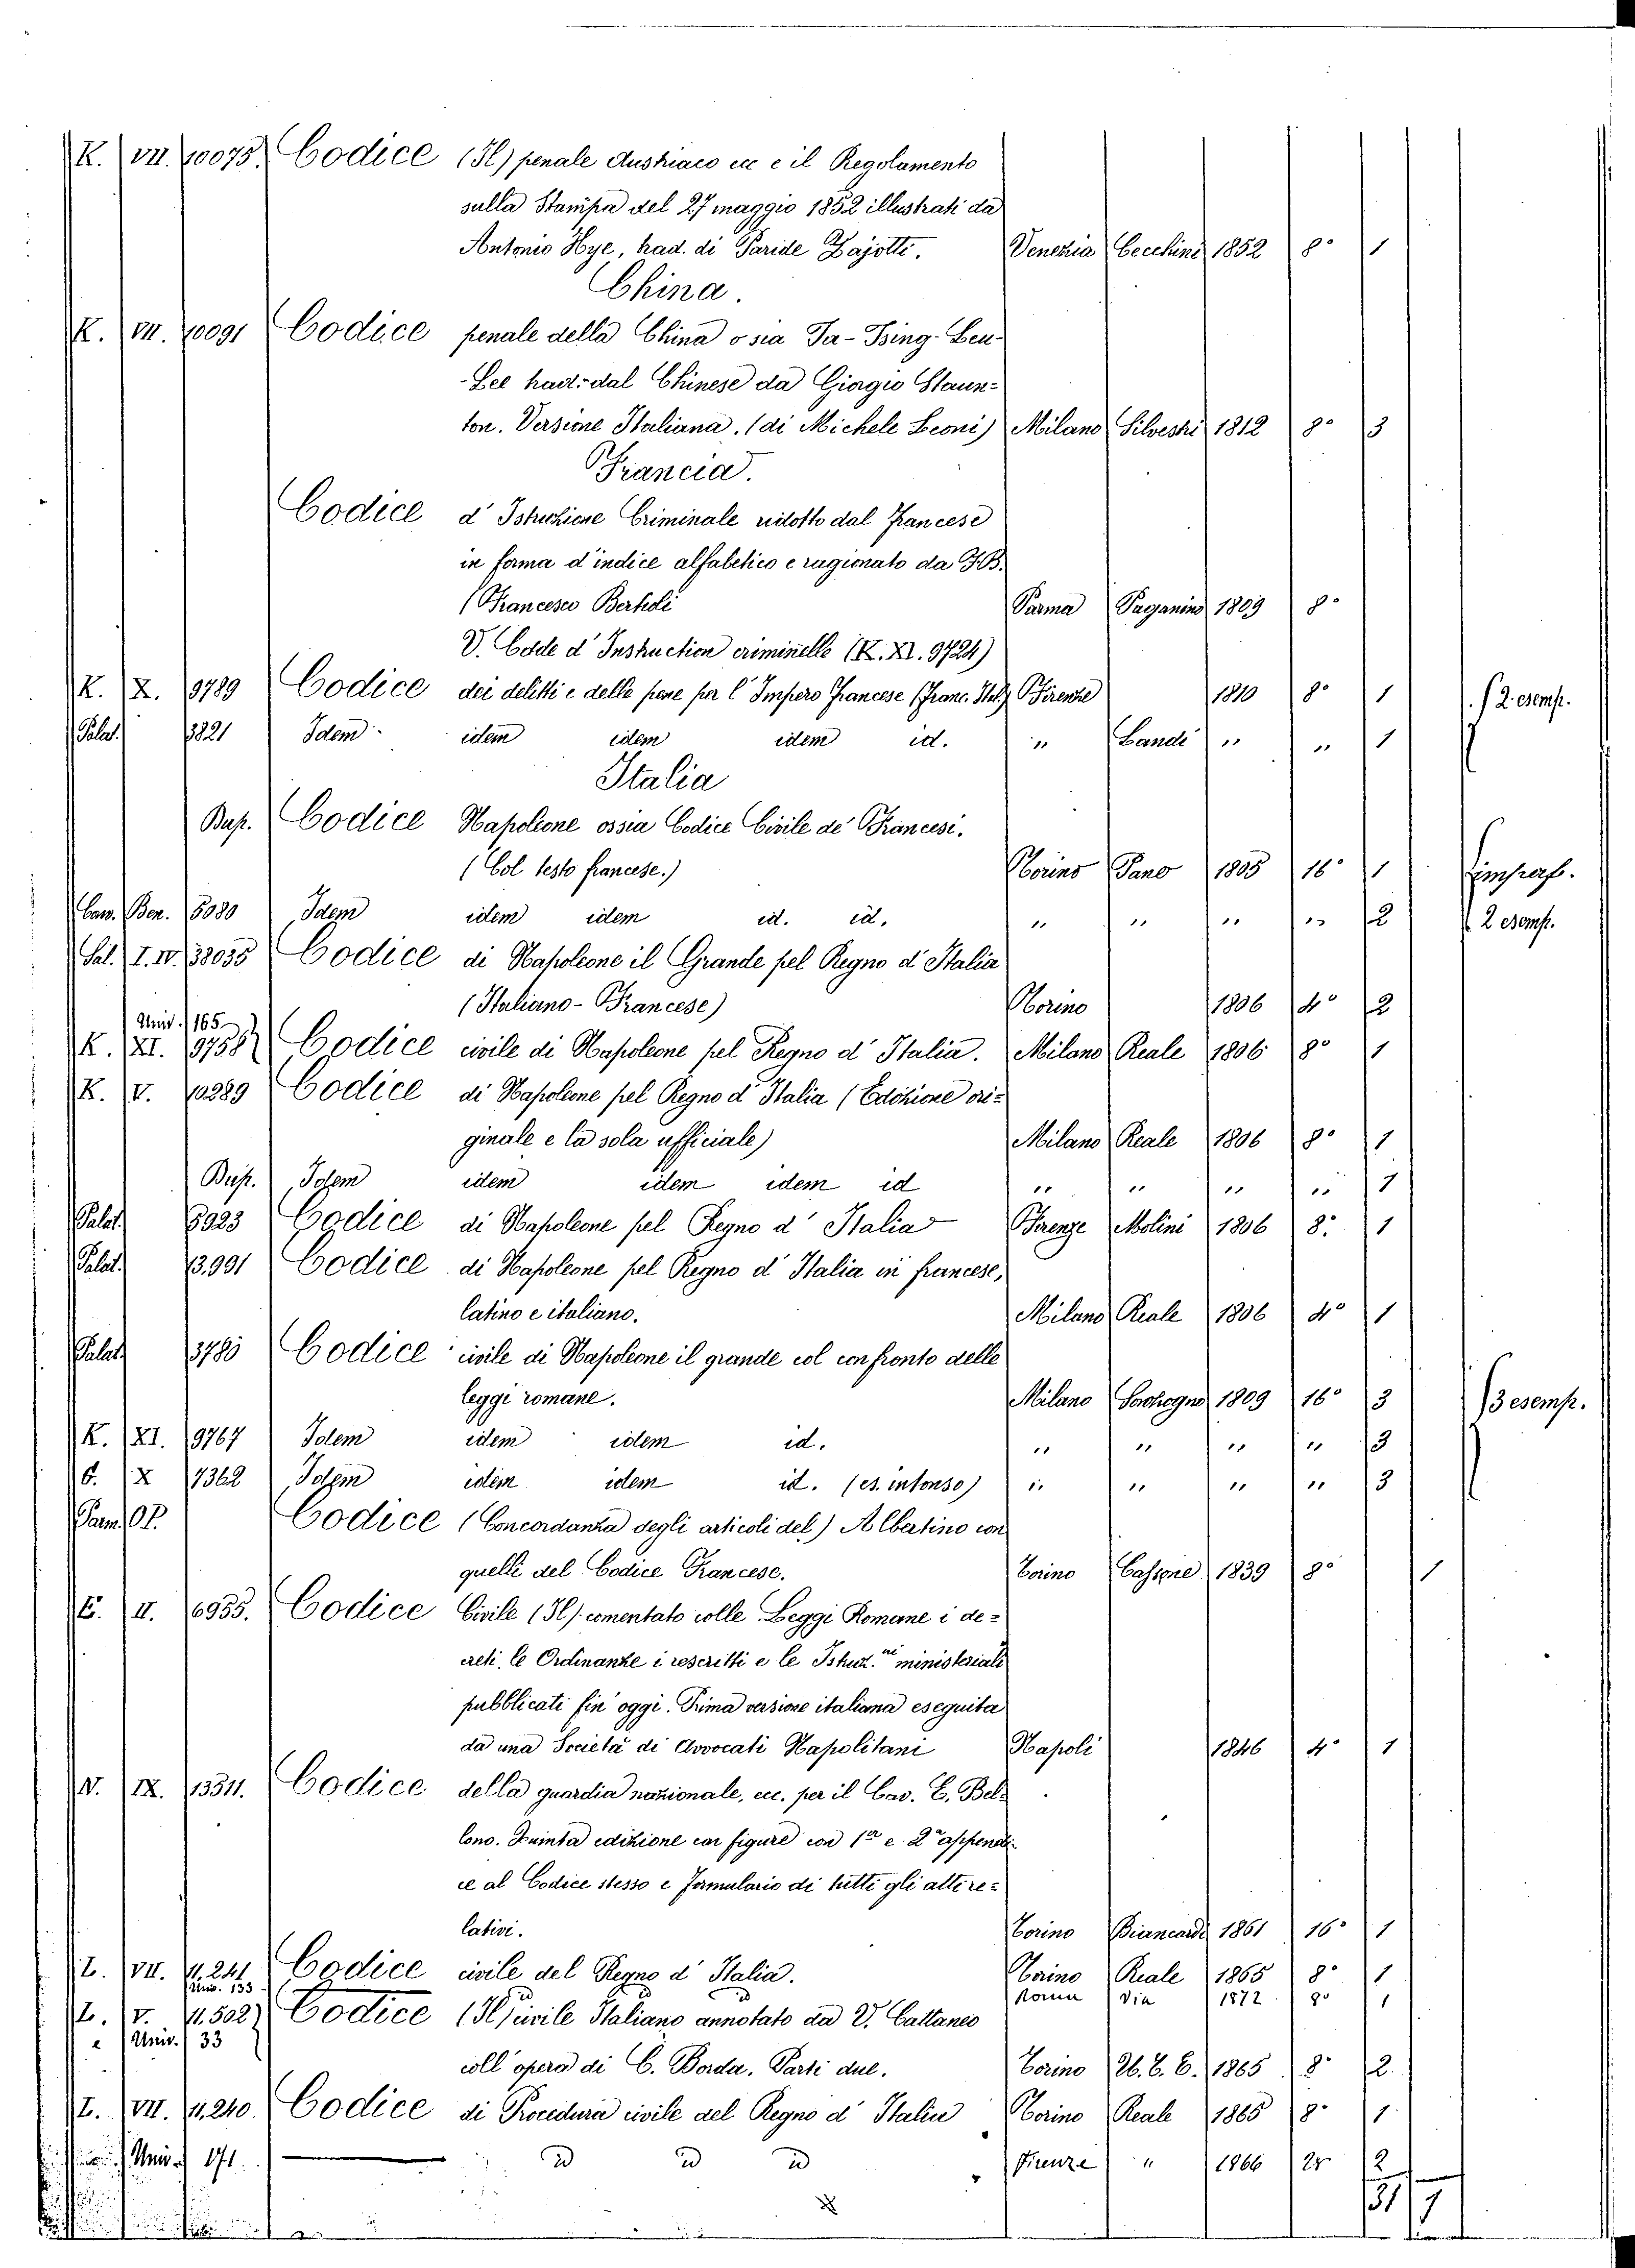 K. VII. 10075. Codice (Il) penale Austriaco ecc e il Regolamento
sulla Stampa del 27 maggio 1852 illustrati da
Antonio Hye, trad. di Paride Zajotti. Venezia Cecchini 1852 8° 1
China.
K. VII. 10091 Codice penale della China o sia Ta-Tsing-Leu-
-Lee trad. dal Chinese da Giorgio Staun=
ton. Versione Italiana. (di Michele Leoni) Milano Silvestri 1812 8° 3
Francia.
Codice d'Istruzione Criminale ridotto dal francese
in forma d'indice alfabetico e ragionato da G.B.
Francesco Bertioli Parma Paganino 1809 8°
V. Code d'Instruction criminelle (K. XI. 9724)
K. X. 9789 Codice dei delitti e delle pene per l'Impero francese (Franc. Ital.) Firenze 1810 8° 1 2 esemp.
Palat. 3821 Idem idem idem idem id. " Landi " " 1
Italia
Bup. Codice Napoleone ossia Codice Civile de' Francesi.
(Col testo francese.) Torino Pane 1805 16° 1
Caw. Ben. 5080 Idem idem idem id. id. " " " " 2 2 esemp.
Sal. I. IV. 38035 Codice di Napoleone il Grande pel Regno d'Italia
(Italiano-Francese) Torino 1806 4° 2
Univ. 165
K. XI. 9758 Codice civile di Napoleone pel Regno d'Italia. Milano Reale 1806 8° 1
K. V. 10289 Codice di Napoleone pel Regno d'Italia (Edizione ori=
ginale e la sola ufficiale) Milano Reale 1806 8° 1
Bup. Idem idem idem idem id " " " " 1
Palat. 8923 Codice di Napoleone pel Regno d'Italia Firenze Molini 1806 8° 1
Palat. 13.991 Codice di Napoleone pel Regno d'Italia in francese,
latino e italiano. Milano Reale 1806 4° 1
Palat. 3780 Codice civile di Napoleone il grande col confronto delle
leggi romane. Milano Sonzogno 1809 16° 3 3 esemp.
K. XI. 9767 Idem idem idem id. " " " " 3
G. X 7362 Idem idem idem id. (es. intonso) " " " " 3
Parm. OP. Codice (Concordanza degli articoli del) Albertino con
quelli del Codice Francese. Torino Cassone 1839 8° 1
E. II. 6955. Codice Civile (Il) comentato colle Leggi Romane i de=
creti, le Ordinanze i rescritti e le Istruz.ni ministeriali
pubblicati fin'oggi. Prima versione italiana eseguita
da una Società di Avvocati Napolitani Napoli 1846 4° 1
N. IX. 13511. Codice della guardia nazionale, ecc. per il Cav. C. Bel=
lono. Quinta edizione con figure con 1a e 2a appendi-
ce al Codice stesso e formulario di tutti gli atti re=
lativi. Torino Biancardi 1861 16° 1
L. VII. 11.241 Codice civile del Regno d'Italia. Torino Reale 1865 8° 1
Univ. 133 Roma Via 1872 8° 1
L. V. 11.502 Codice (Il) civile Italiano annotato da V. Cattaneo
e Univ. 33
coll'opera di C. Borda. Parti due. Torino U.T.E. 1865 8° 2.
L. VII. 11.240. Codice di Procedura civile del Regno d'Italia Torino Reale 1865 8° 1
Univ. 171. id id id Firenze " 1866 24° 2
51 1